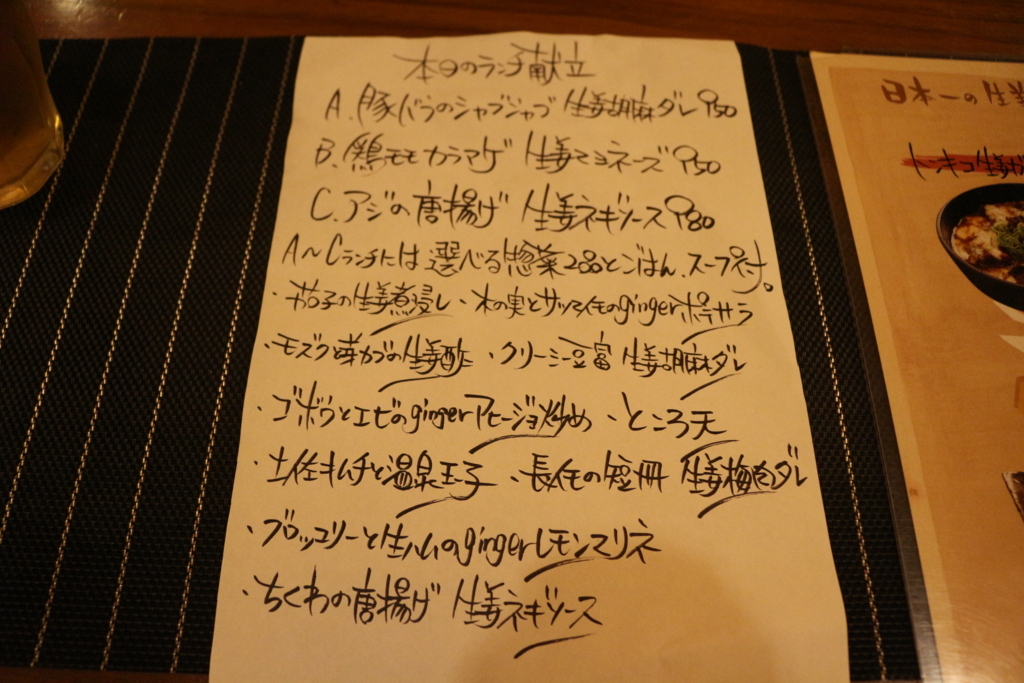 本日のランチ献立
A.豚バラのシャブシャブ 生姜胡麻ダレ 950
B.鶏モモカラアゲ 生姜マヨネーズ 950
C.アジの唐揚げ 生姜ネギソース 980
A〜Cランチには選べる惣菜2品とごはん、スープ付。
・茄子の生姜煮浸し ・木の実とサツマイモのgingerポテサラ
・モズクと芽カブの生姜酢 ・クリーミー豆富 生姜胡麻ダレ
・ゴボウとエビのgingerアヒージョ炒め ・ところ天
・土佐キムチと温泉玉子 ・長芋の短冊 生姜梅肉ダレ
・ブロッコリーと生ハムのgingerレモンマリネ
・ちくわの唐揚げ 生姜ネギソース
日本一の生姜